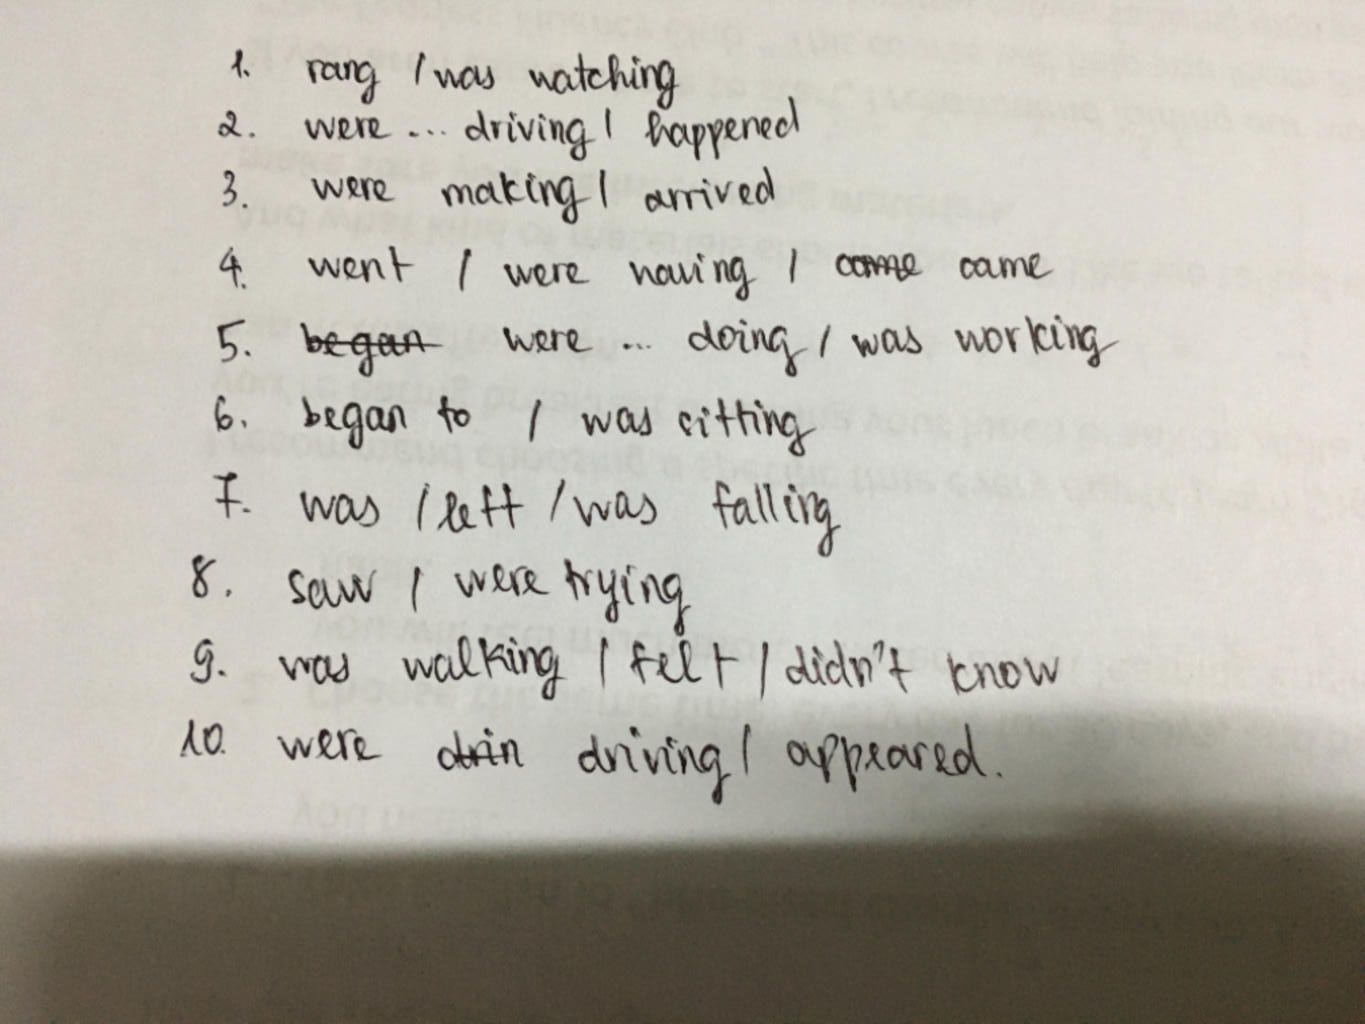 1. rang / was watching
2. were ... driving / happened
3. were making / arrived
4. went / were having / came came
5. began were ... doing / was working
6. began to / was sitting
7. was / left / was falling
8. saw / were trying
9. was walking / felt / didn't know
10. were drin driving / appeared.